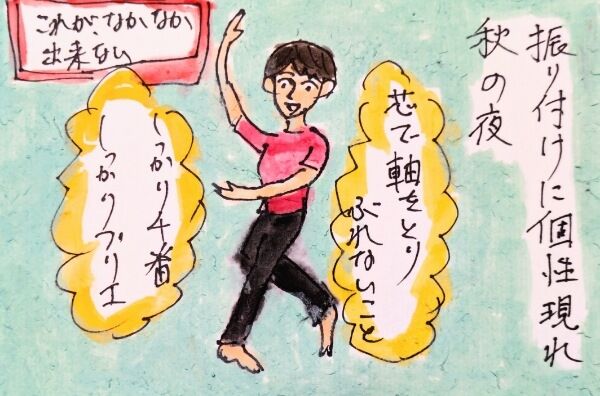 振り付けに個性現れ
秋の夜
芯で軸をとり
ぶれないこと
これが、なかなか
出来ない
しっかり4番
しっかりプリエ